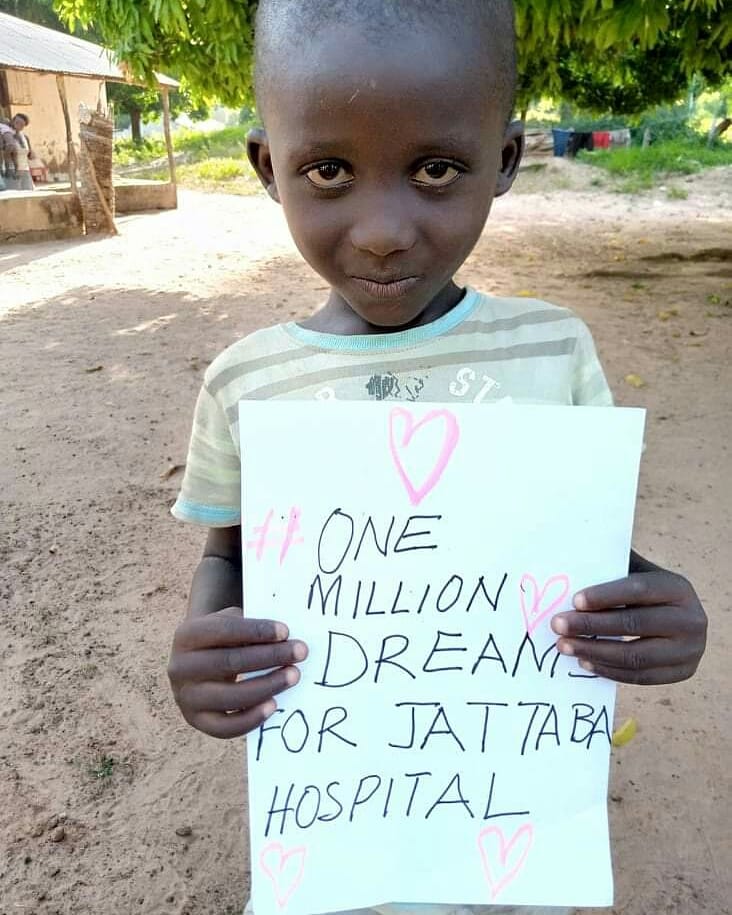 # ONE
MILLION
DREAMS
FOR JATTABA
HOSPITAL